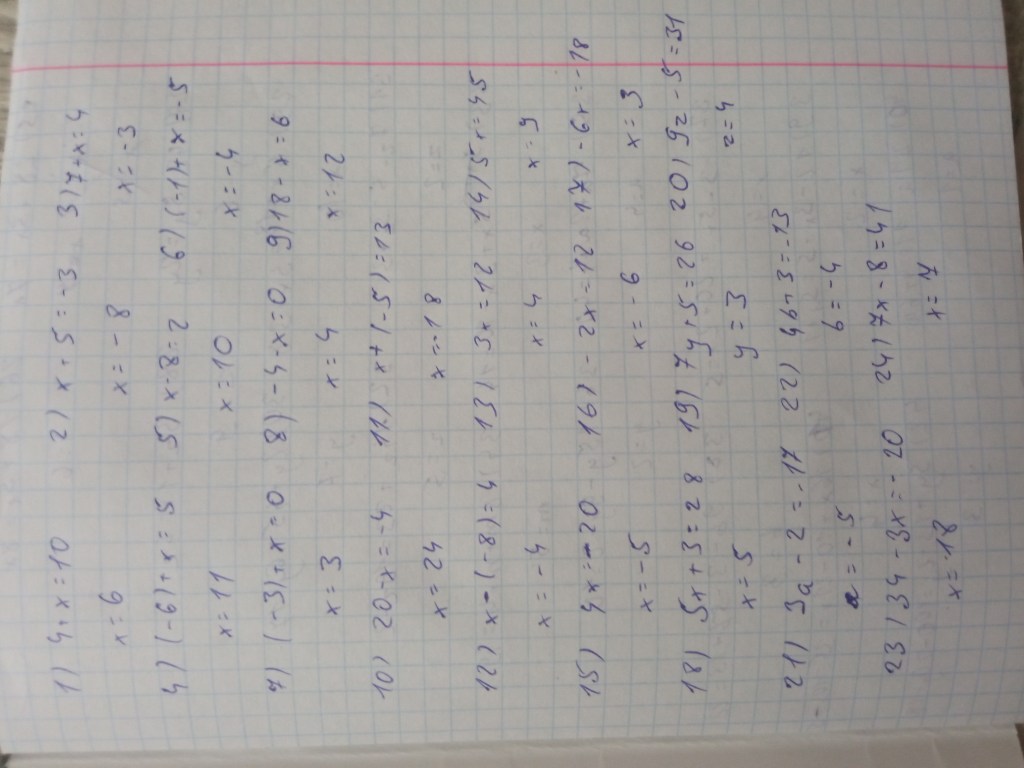 1) 4+x=10 2) x+5=-3 3) 7+x=4
x=6 x=-8 x=-3
4) (-6)+x=5 5) x-8=2 6) (-1)+x=-5
x=11 x=10 x=-4
7) (-3)+x=0 8) -4-x=0 9) 18-x=6
x=3 x=4 x=12
10) 20-x=-4 11) x+(-5)=13
x=24 x=-18
12) x-(-8)=4 13) 3x=12 14) 5x=45
x=-4 x=4 x=9
15) 4x=-20 16) -2x=12 17) -6x=-18
x=-5 x=-6 x=3
18) 5x+3=28 19) 7y+5=26 20) 9z-5=31
x=5 y=3 z=4
21) 3a-2=-17 22) 4b+3=-13
a=-5 b=-4
23) 34-3x=-20 24) 7x-8=41
x=18 x=7